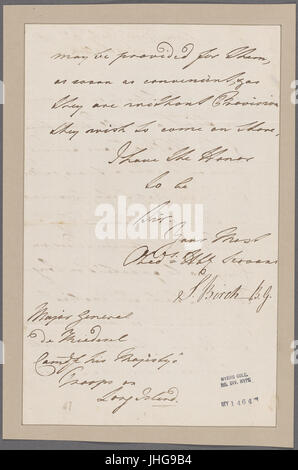 may be provided for them,
as soon as convenient, as
they are without Provision
they wish to come on shore,
I have the Honor
to be
Sir
Your Most
Obed & Hbl Servant
S. Birch B.G.
Major General
de Riedesel
Comdg his Majesty's
Troops on
Long Island.
MYERS COLL.
REV 1464
alamy
Image ID: JHG9B4
www.alamy.com